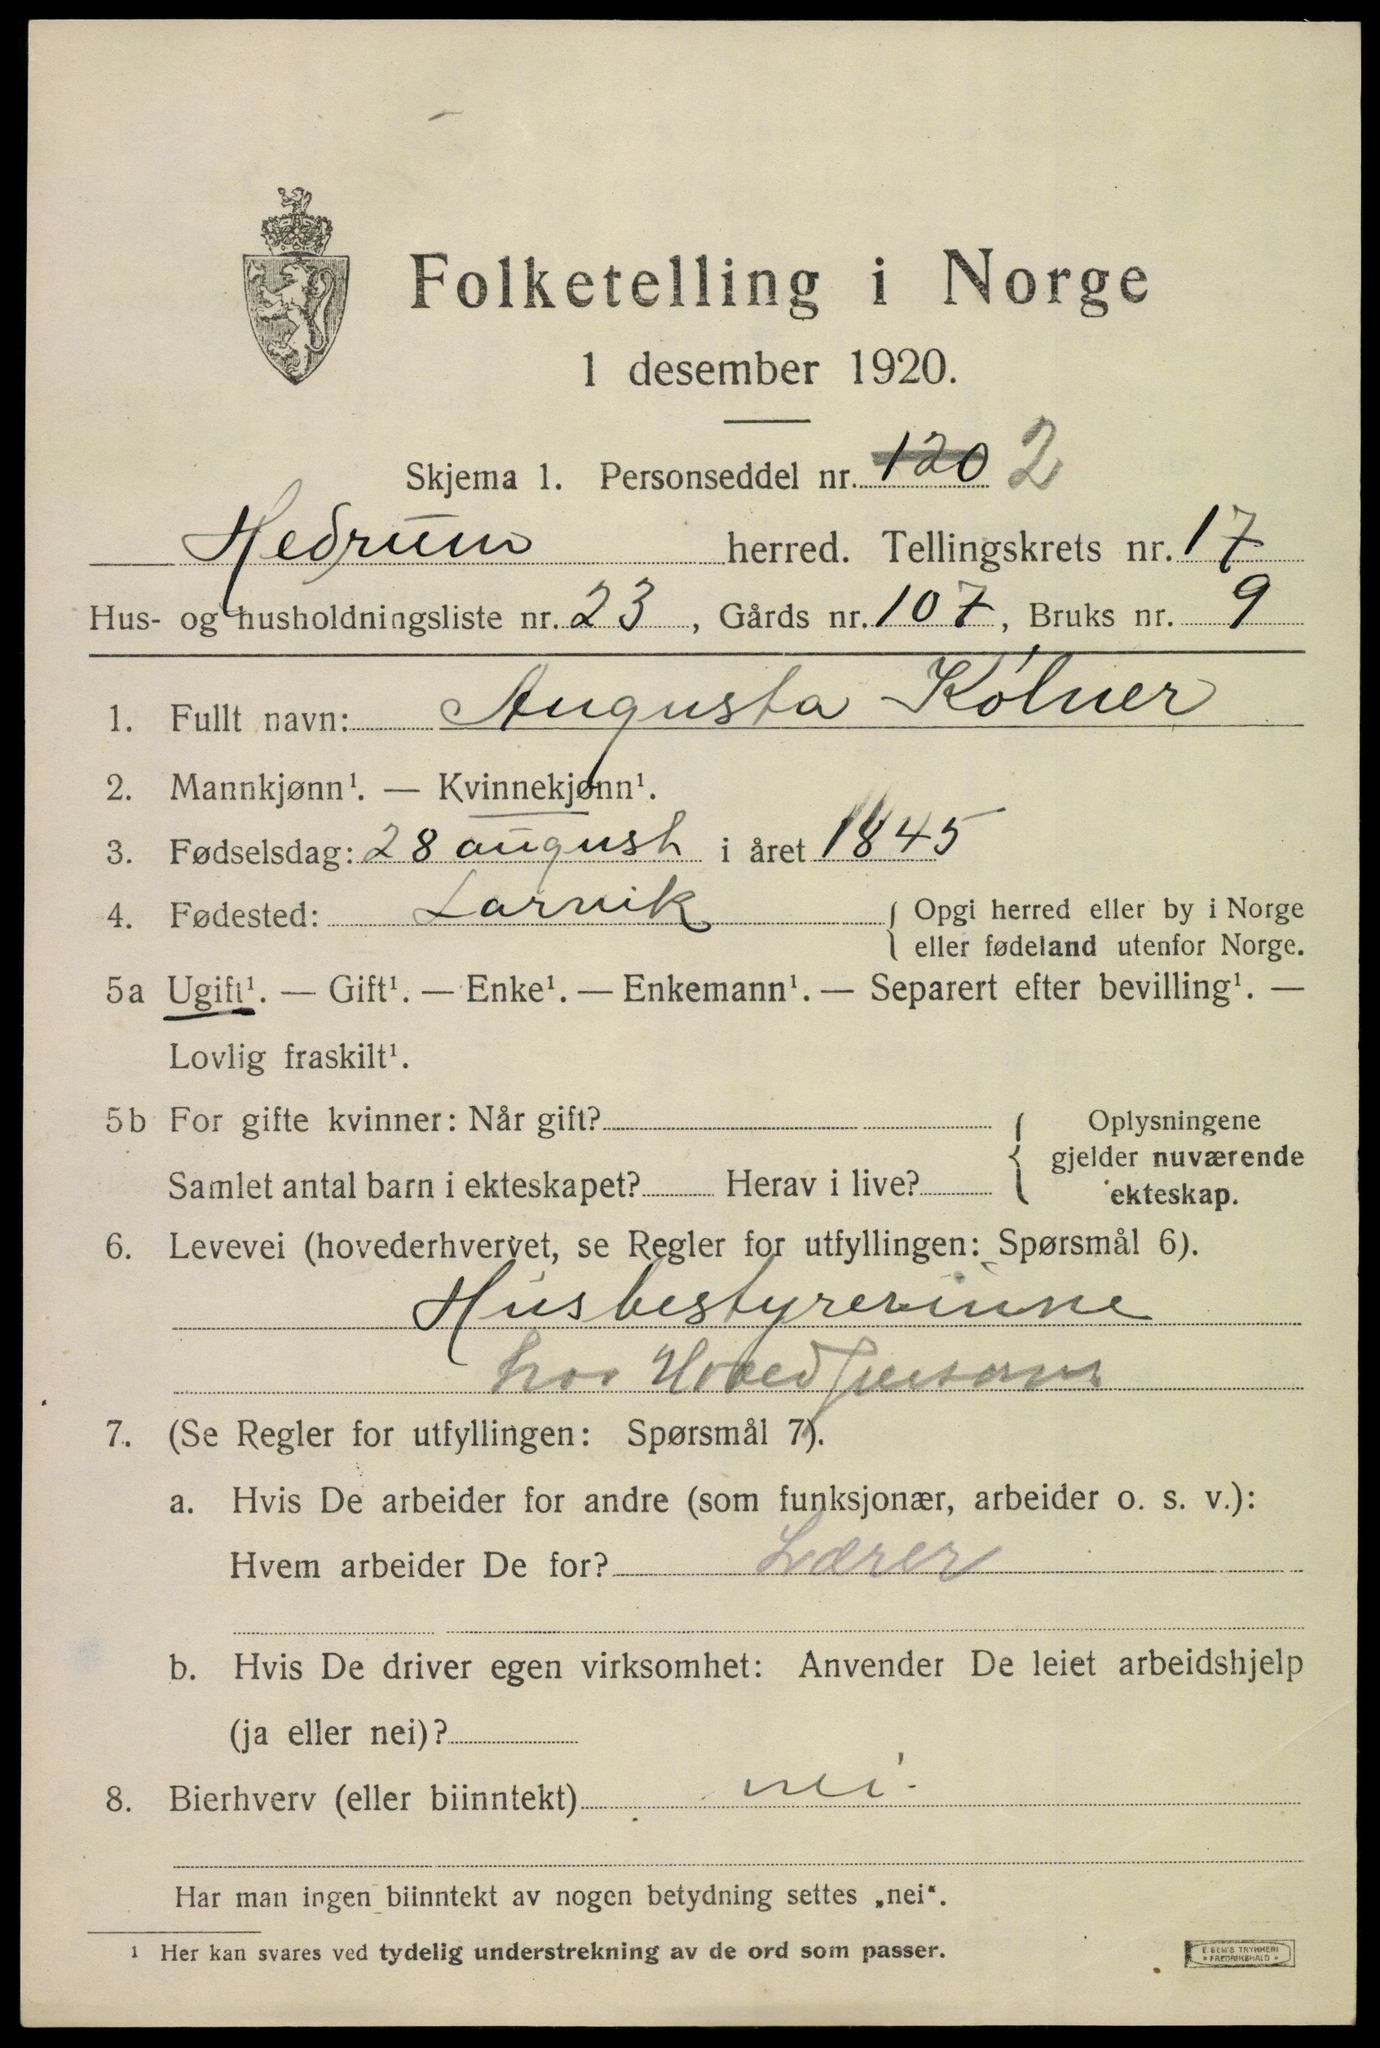 Folketelling i Norge
1 desember 1920.
Skjema 1. Personseddel nr. 120 2
Hedrum herred. Tellingskrets nr. 17
Hus- og husholdningsliste nr. 23, Gårds nr. 107, Bruks nr. 9
1. Fullt navn: Augusta Kølner
2. Mannkjønn¹. — Kvinnekjønn¹.
3. Fødselsdag: 28 august i året 1845
4. Fødested: Larvik { Opgi herred eller by i Norge
eller fødeland utenfor Norge.
5a Ugift¹. — Gift¹. — Enke¹. — Enkemann¹. — Separert efter bevilling¹. —
Lovlig fraskilt¹.
5b For gifte kvinner: Når gift?
Samlet antal barn i ekteskapet? Herav i live?
{ Oplysningene
gjelder nuværende
ekteskap.
6. Levevei (hovederhvervet, se Regler for utfyllingen: Spørsmål 6).
Husbestyrerinne
hos Hovedperson
7. (Se Regler for utfyllingen: Spørsmål 7).
a. Hvis De arbeider for andre (som funksjonær, arbeider o. s. v.):
Hvem arbeider De for? Lærer
b. Hvis De driver egen virksomhet: Anvender De leiet arbeidshjelp
(ja eller nei)?
8. Bierhverv (eller biinntekt) nei
Har man ingen biinntekt av nogen betydning settes „nei“.
1 Her kan svares ved tydelig understrekning av de ord som passer.
E SEM'S TRYKKERI
FREDRIKSHALD